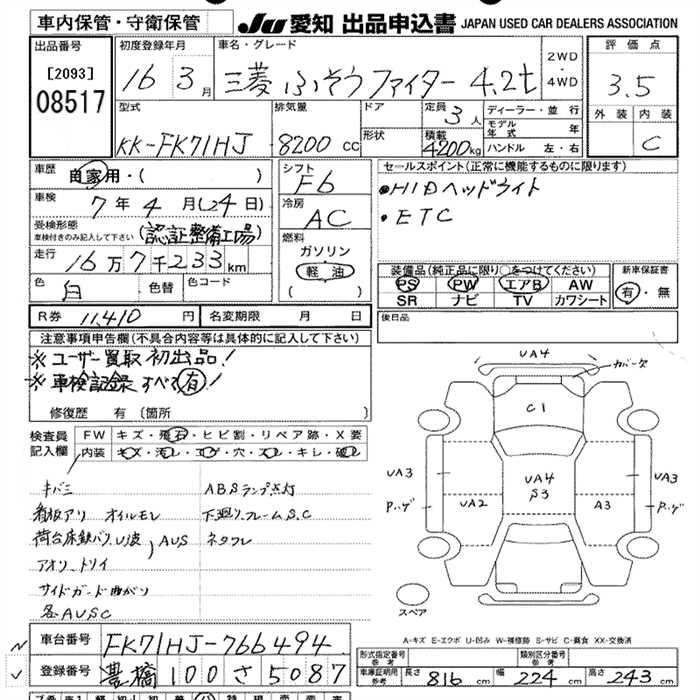 車内保管・守衛保管
JU 愛知 出品申込書 JAPAN USED CAR DEALERS ASSOCIATION
出品番号
[2093]
08517
初度登録年月
16 3月
車名・グレード
三菱 ふそうファイター 4.2t
2WD
・
4WD
評価点
3.5
外装 内装
C
型式
KK-FK71HJ
排気量
8200 cc
ドア
形状
定員
3人
積載
4200kg
ディーラー・並行
モデル年式 年
ハンドル 左・右
車歴
自家用・( )
車検
7年4月(24日)
受検形態
車検付きのみ記入して下さい
(認証整備工場)
走行
16万7千233km
色
白
色替
色コード
シフト
F6
冷房
AC
燃料
ガソリン
軽油
( )
セールスポイント(正常に機能するものに限ります)
•HIDヘッドライト
・ETC
装備品(純正品に限り○をつけてください)
PS PW エアB AW
SR ナビ TV カワシート
新車保証書
有・無
R券 11,410円
名変期限 月 日
後日品
注意事項申告欄(不具合内容等は具体的に記入して下さい)
※ユーザー買取 初出品!
※車検記録 すべて有!
修復歴 有 〔箇所 〕
検査員
記入欄
FW キズ・飛石・ヒビ割・リペア跡・X要
内装 キズ・汚レ・コゲ・穴・スレ・キレ・破レ
キバミ
ABSランプ点灯
看板アリ オイルモレ
下廻りフレームS.C
荷台床鉄バリ U波 ) AUS
ネタフレ
アオリ・トリイ
サイドガード曲がり
各AUSC
UA4
カバー欠
C1
UA3
Pハゲ
UA2
UA4
S3
A3
UA3
Pハゲ
スペア
A-キズ E-エクボ U-凹み W-補修跡 S-サビ C-腐食 XX-交換済
車台番号
FK71HJ-766494
登録番号
豊橋 100 さ 5087
形式指定番号
参考
類別区分番号
参考
車庫証明用
参考
長さ 816 cm
幅 224 cm
高さ 243 cm